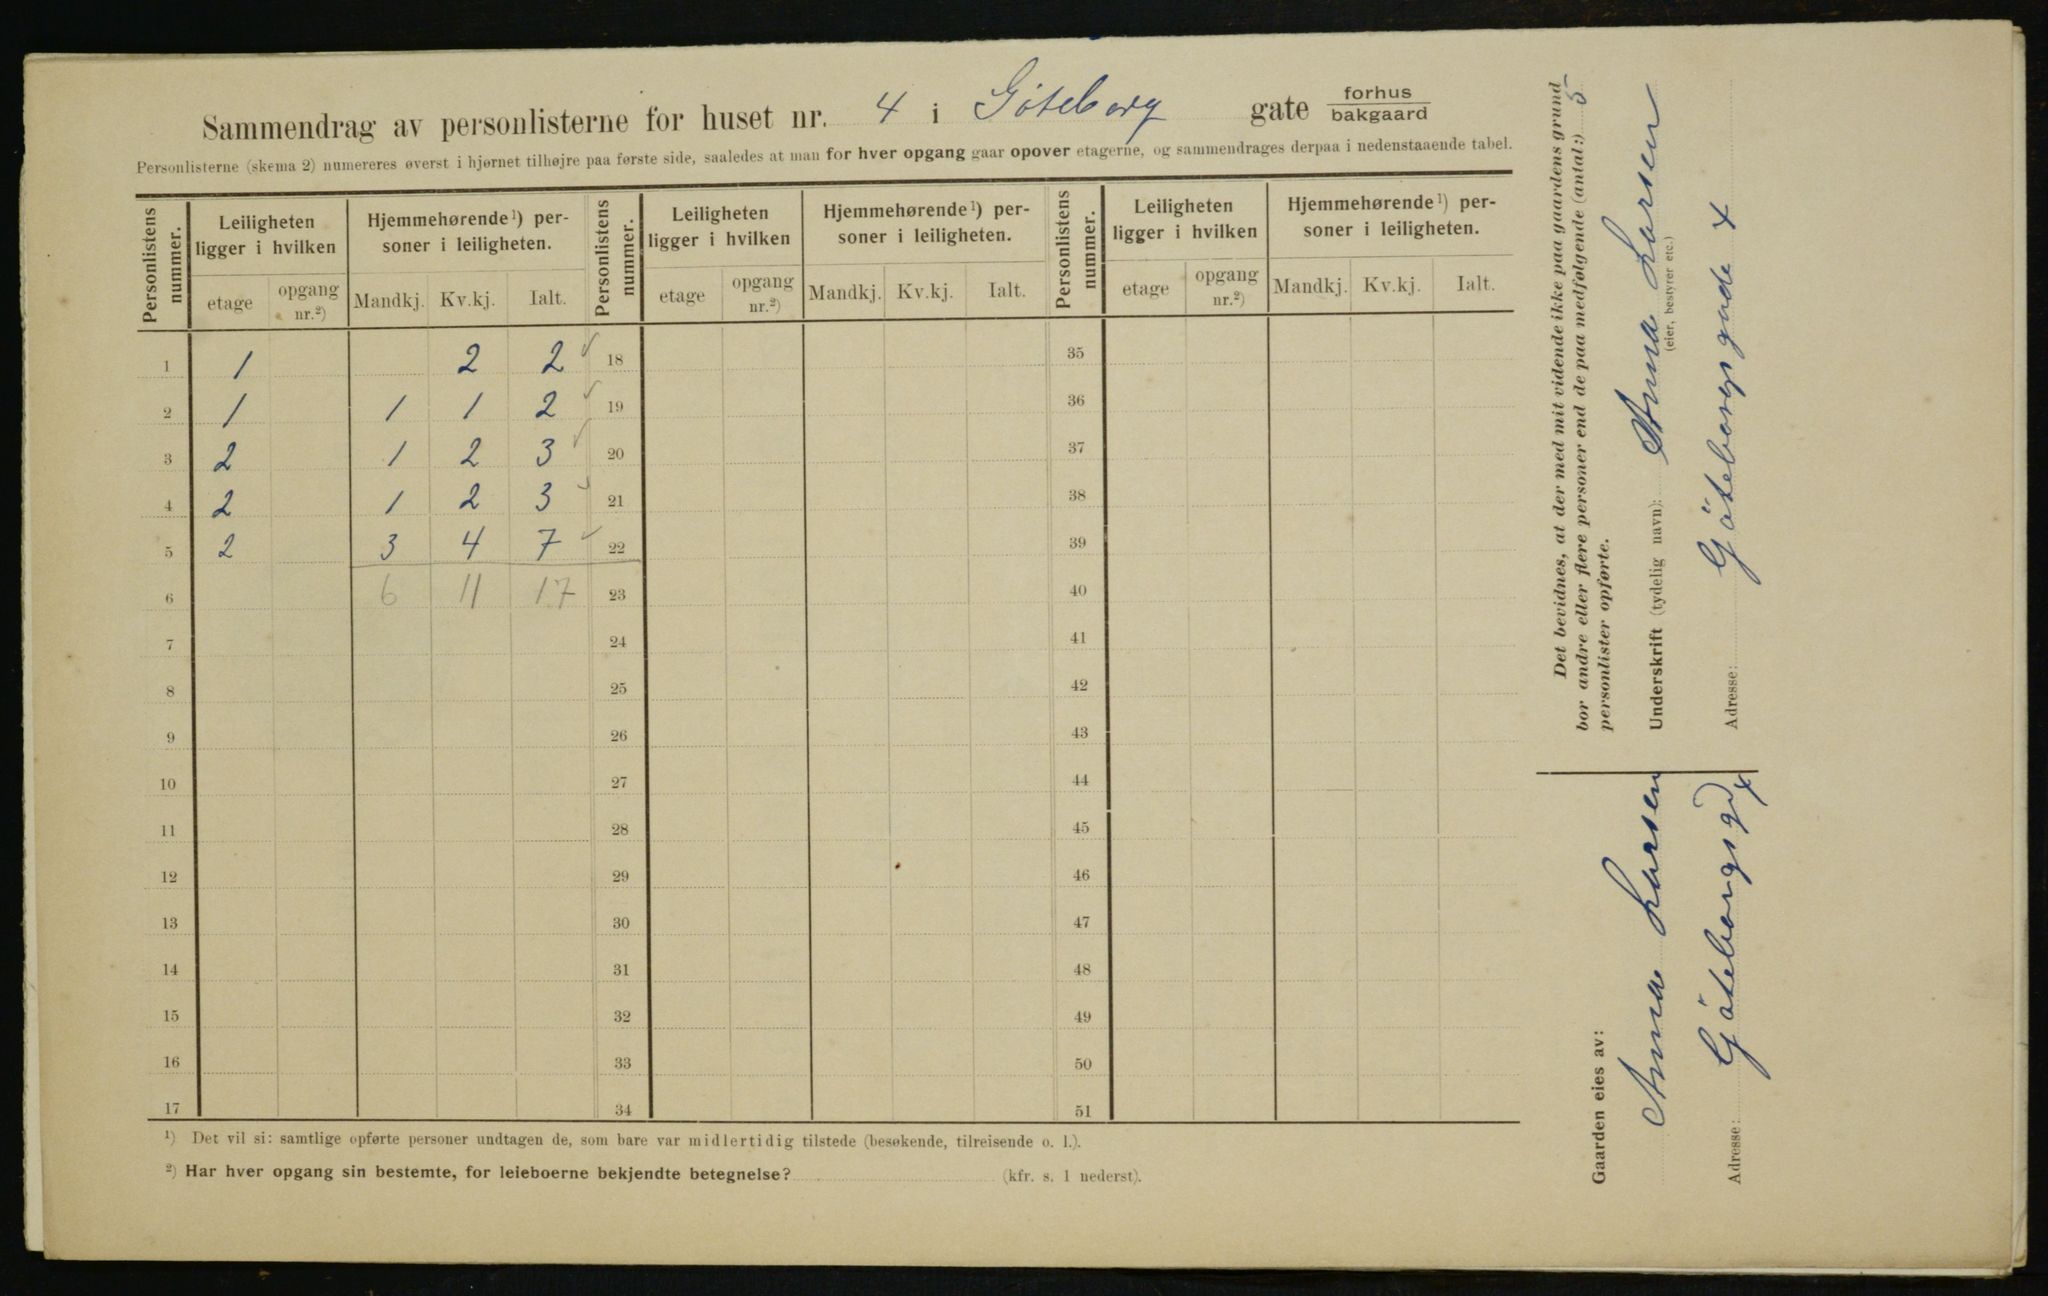 Sammendrag av personlisterne for huset nr. 4 i Göteborg gate forhus/bakgaard
Personlisterne (skema 2) numereres øverst i hjørnet tilhøjre paa første side, saaledes at man for hver opgang gaar opover etagerne, og sammendrages derpaa i nedenstaaende tabel.
Personlistens nummer. Leiligheten ligger i hvilken Hjemmehørende¹) personer i leiligheten. Personlistens nummer. Leiligheten ligger i hvilken Hjemmehørende¹) personer i leiligheten. Personlistens nummer. Leiligheten ligger i hvilken Hjemmehørende¹) personer i leiligheten.
etage opgang nr.²) Mandkj. Kv.kj. Ialt. etage opgang nr.²) Mandkj. Kv.kj. Ialt. etage opgang nr.²) Mandkj. Kv.kj. Ialt.
1 1 2 2 18 35
2 1 1 1 2 19 36
3 2 1 2 3 20 37
4 2 1 2 3 21 38
5 2 3 4 7 22 39
6 6 11 17 23 40
7 24 41
8 25 42
9 26 43
10 27 44
11 28 45
12 29 46
13 30 47
14 31 48
15 32 49
16 33 50
17 34 51
¹) Det vil si: samtlige opførte personer undtagen de, som bare var midlertidig tilstede (besøkende, tilreisende o. l.).
²) Har hver opgang sin bestemte, for leieboerne bekjendte betegnelse? (kfr. s. 1 nederst).
Det bevidnes, at der med mit vidende ikke paa gaardens grund
bor andre eller flere personer end de paa medfølgende (antal:) 5
personlister opførte.
Underskrift (tydelig navn): Anna Larsen
(eier, bestyrer etc.)
Adresse: Göteborgsgade 4
Gaarden eies av:
Anna Larsen
Adresse: Göteborgsgd 4